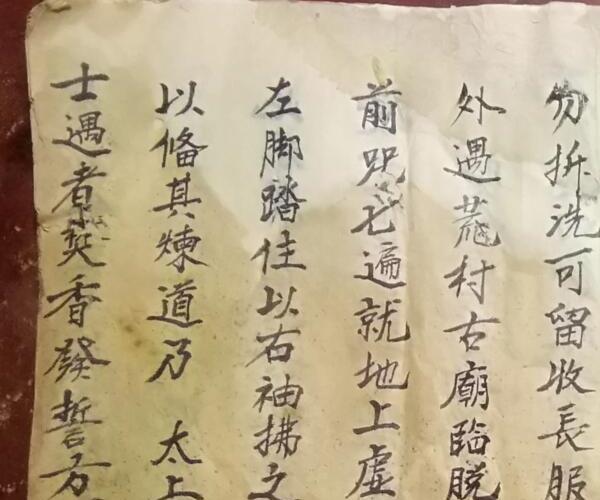 勿拆洗可留收長服
外遇荒村古廟臨脱
前咒七遍就地上虚
左脚踏住以右袖拂之
以俻其煉道乃 太上
士遇者焚香發誓方